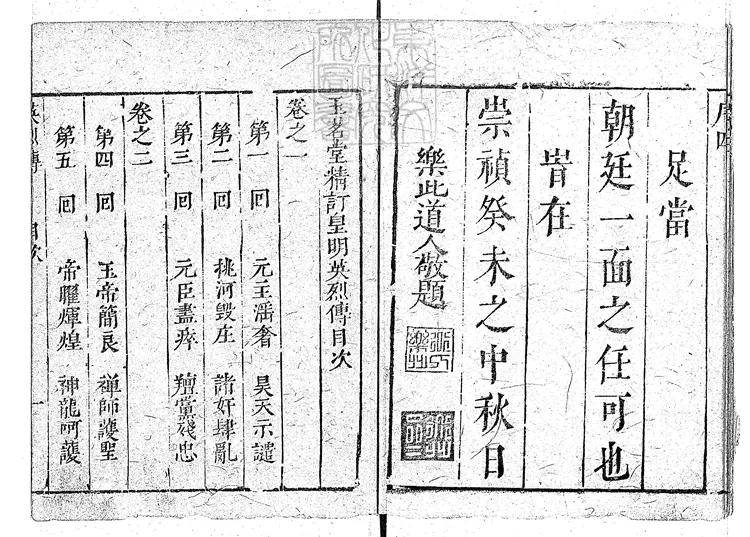 序四
足當
朝廷一面之任可也
旹在
崇禎癸未之中秋日
樂此道人敬題
玉茗堂精訂皇明英烈傳目次
卷之一
第一回 元主滛奢 昊天示譴
第二回 挑河毀庄 諸奸肆亂
第三回 元臣盡瘁 羶黨殘忠
卷之二
第四回 玉帝簡良 禅師護聖
第五回 帝曜輝煌 神龍呵護
英烈傳 目次 一